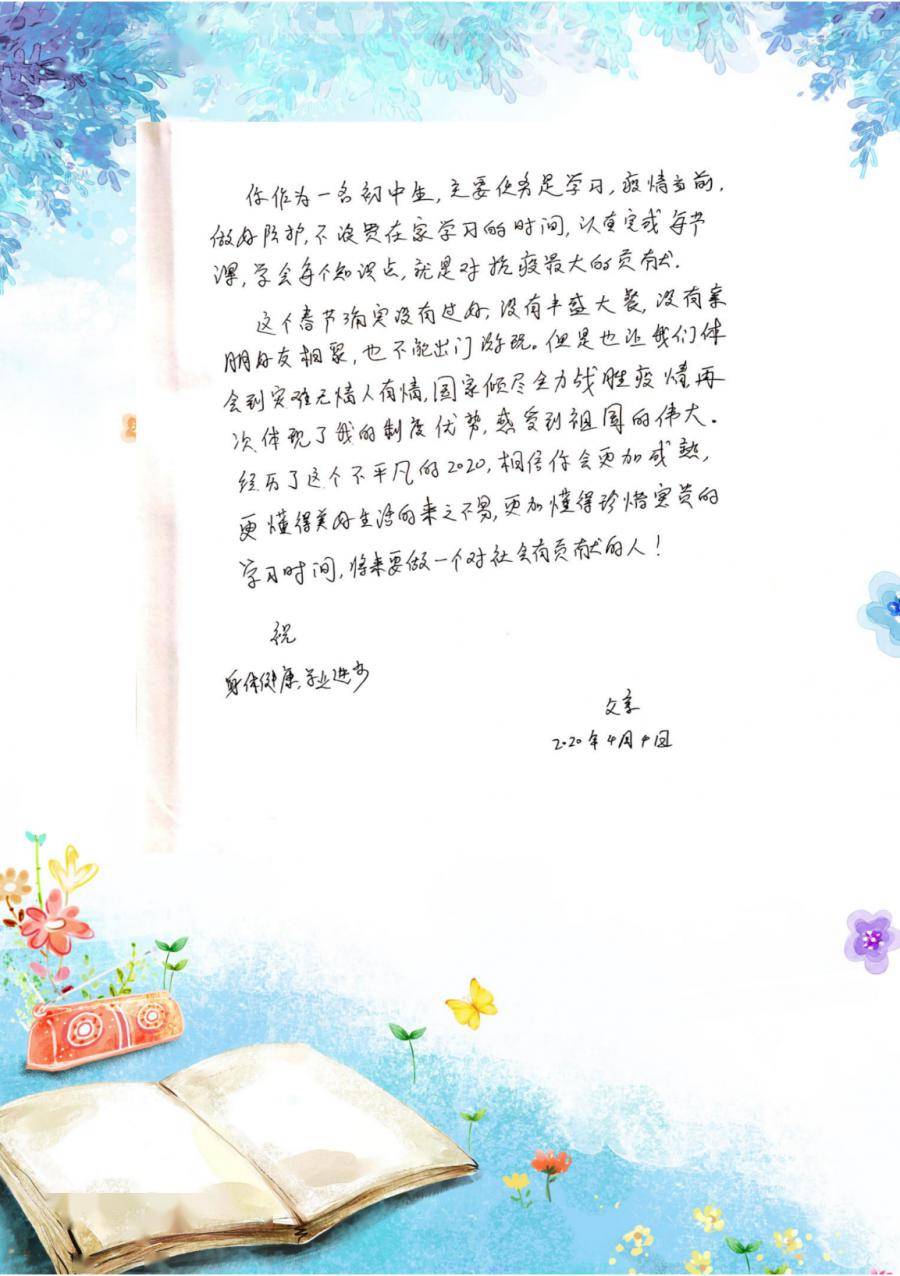 你作为一名初中生，主要任务是学习，疫情当前，
做好防护，不浪费在家学习的时间，认真完成每节
课，学会每个知识点，就是对抗疫最大的贡献.
这个春节确实没有过好，没有丰盛大餐，没有亲
朋好友相聚，也不能出门游玩。但是也让我们体
会到灾难无情人有情，国家倾尽全力战胜疫情再
次体现了我的制度优势，感受到祖国的伟大。
经历了这个不平凡的2020，相信你会更加成熟，
更懂得美好生活的来之不易，更加懂得珍惜宝贵的
学习时间，将来要做一个对社会有贡献的人！
祝
身体健康，学业进步
2020年4月4日